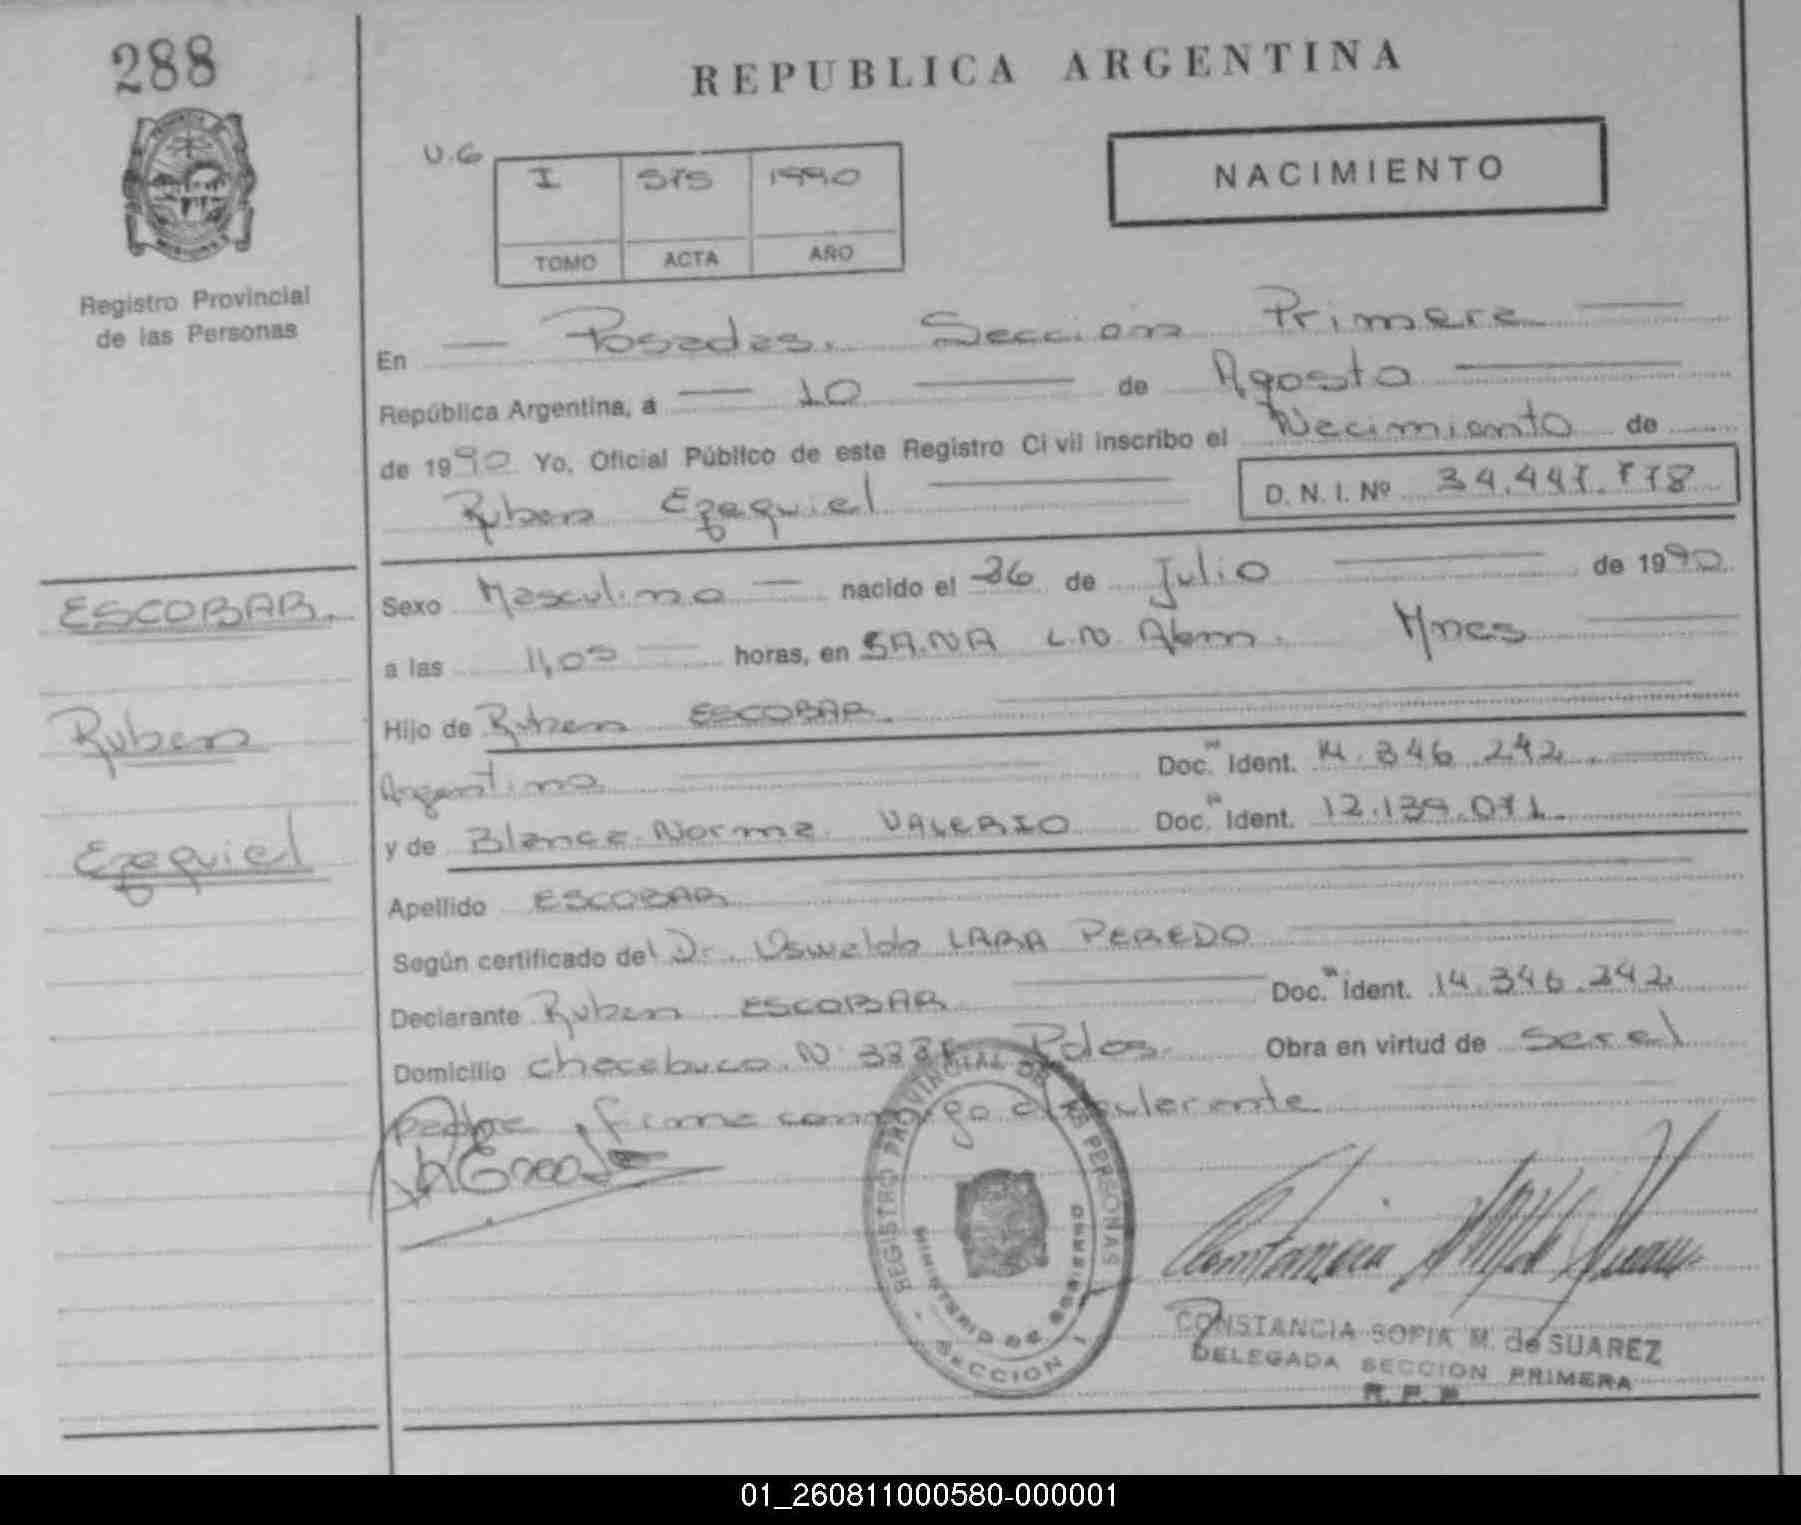 288
REPUBLICA ARGENTINA
U.G
I 1990
TOMO ACTA AÑO
NACIMIENTO
Registro Provincial
de las Personas
En Posadas. Seccion Primera
República Argentina, a 10 de Agosto
de 1990 Yo, Oficial Público de este Registro Civil inscribo el Nacimiento de
Ruben Ezequiel D.N.I. Nº
ESCOBAR.
Ruben
Ezequiel
Sexo Masculino nacido el 26 de Julio de 1990
a las 11,05 horas, en Mnes
Hijo de Ruben ESCOBAR.
Argentino Doc. Ident. 14.346.242
y de Blanca Norma VALERIO Doc. Ident. 12.139.071.
Apellido ESCOBAR
Según certificado del Dr. Oswaldo LARA PEREDO
Declarante Ruben ESCOBAR Doc. Ident. 14.346.242
Domicilio Chacabuco N Pdas. Obra en virtud de ser el
Padre, firma conmigo el
REGISTRO PROVINCIAL DE LAS PERSONAS
MINISTERIO DE GOBIERNO
SECCION 1
CONSTANCIA SOFIA M. de SUAREZ
DELEGADA SECCION PRIMERA
R. P. P.
01_260811000580-000001